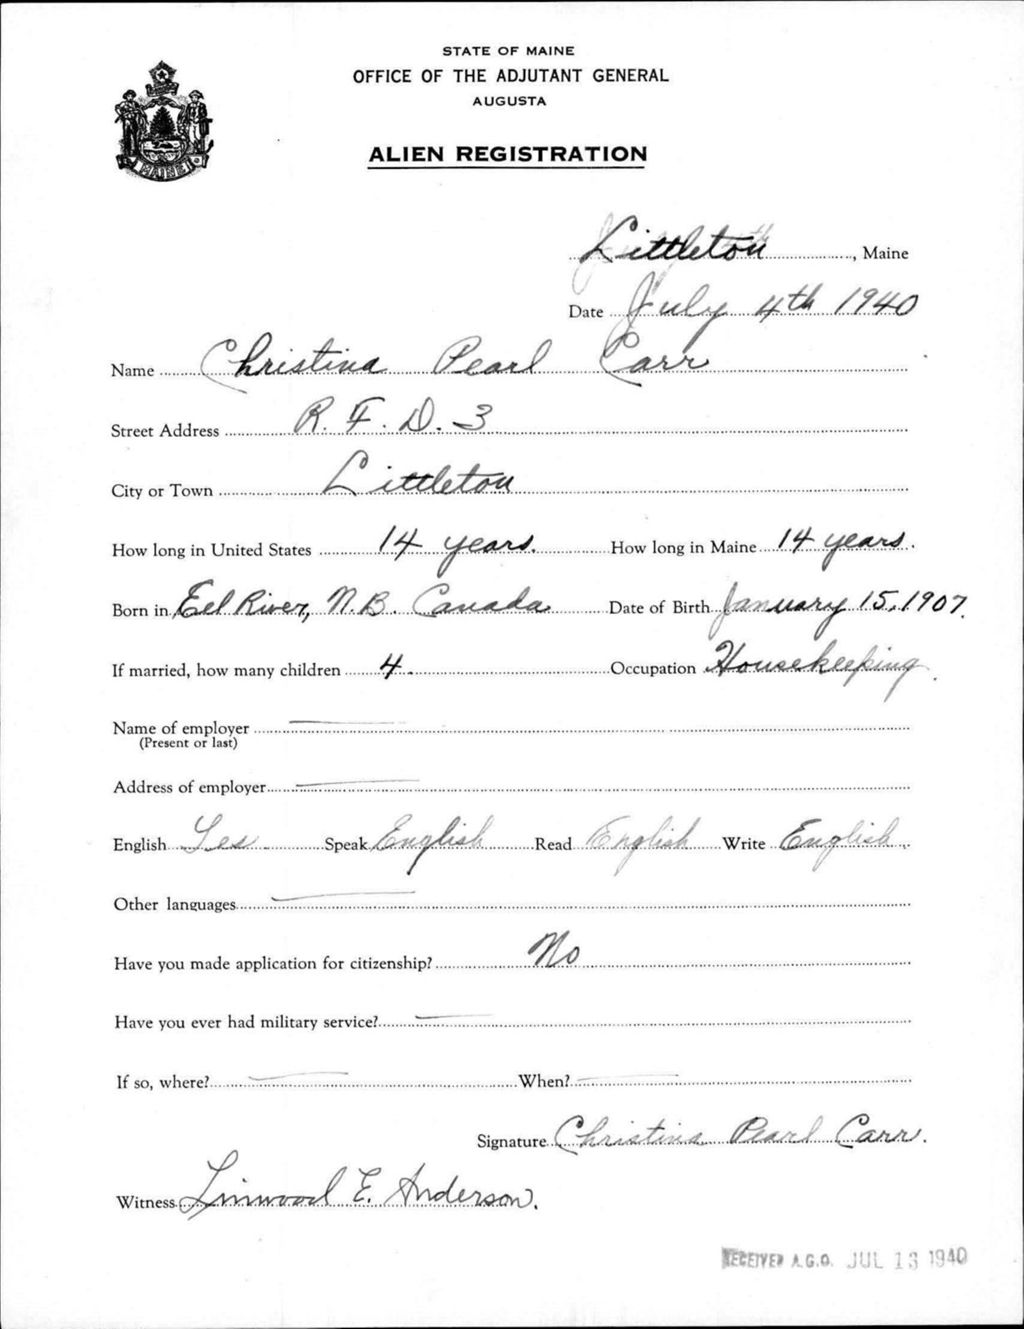 STATE OF MAINE
OFFICE OF THE ADJUTANT GENERAL
AUGUSTA
MAINE
ALIEN REGISTRATION
Littleton, Maine
Date July 4th 1940
Name Christina Pearl Carr
Street Address R. F. D. 3
City or Town Littleton
How long in United States 14 years. How long in Maine 14 years.
Born in Eel River, N.B. Canada Date of Birth January 15, 1907.
If married, how many children 4. Occupation Housekeeping.
Name of employer
(Present or last)
Address of employer
English Yes Speak English Read English Write English
Other languages
Have you made application for citizenship? No
Have you ever had military service?
If so, where? When?
Signature Christina Pearl Carr.
Witness Linwood E. Anderson.
RECEIVED A.G.O. JUL 13 1940